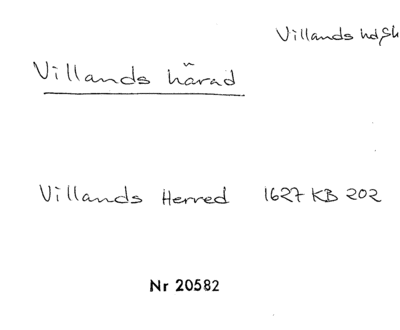 Villands hd, Sk
Villands härad
Villands Herred 1627 KB 202
Nr 20582